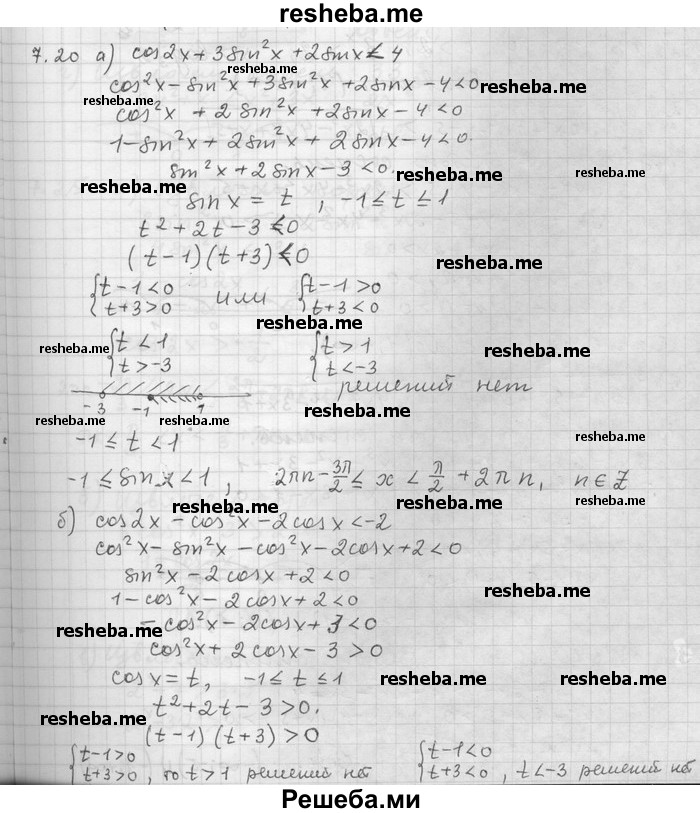 resheba.me
7.20 а) cos2x + 3sin²x + 2sinx < 4
resheba.me
cos²x – sin²x + 3sin²x + 2sinx – 4 < 0
resheba.me
resheba.me
cos²x + 2sin²x + 2sinx – 4 < 0
1 – sin²x + 2sin²x + 2sinx – 4 < 0.
sin²x + 2sinx – 3 < 0.
resheba.me
resheba.me
resheba.me
sinx = t , -1 ≤ t ≤ 1
t² + 2t – 3 < 0
(t – 1)(t + 3) < 0
resheba.me
{t – 1 < 0 {t – 1 > 0
{t + 3 > 0 или {t + 3 < 0
resheba.me
resheba.me
{t < 1 {t > 1
resheba.me
{t > -3 {t < -3
решений нет
-3 -1 1
resheba.me
resheba.me
resheba.me
-1 ≤ t < 1
resheba.me
-1 ≤ sinx < 1, 2πn – 3π/2 ≤ x < π/2 + 2πn, n ∈ Z
resheba.me
resheba.me
resheba.me
б) cos2x – cos²x – 2cosx < -2
cos²x – sin²x – cos²x – 2cosx + 2 < 0
sin²x – 2cosx + 2 < 0
resheba.me
1 – cos²x – 2cosx + 2 < 0
resheba.me
– cos²x – 2cosx + 3 < 0
cos²x + 2cosx – 3 > 0
cosx = t, -1 ≤ t ≤ 1
resheba.me
resheba.me
t² + 2t – 3 > 0.
resheba.me
(t – 1)(t + 3) > 0
{t – 1 > 0 {t – 1 < 0
{t + 3 > 0 , то t > 1 решений нет {t + 3 < 0 , t < -3 решений нет
Решеба.ми